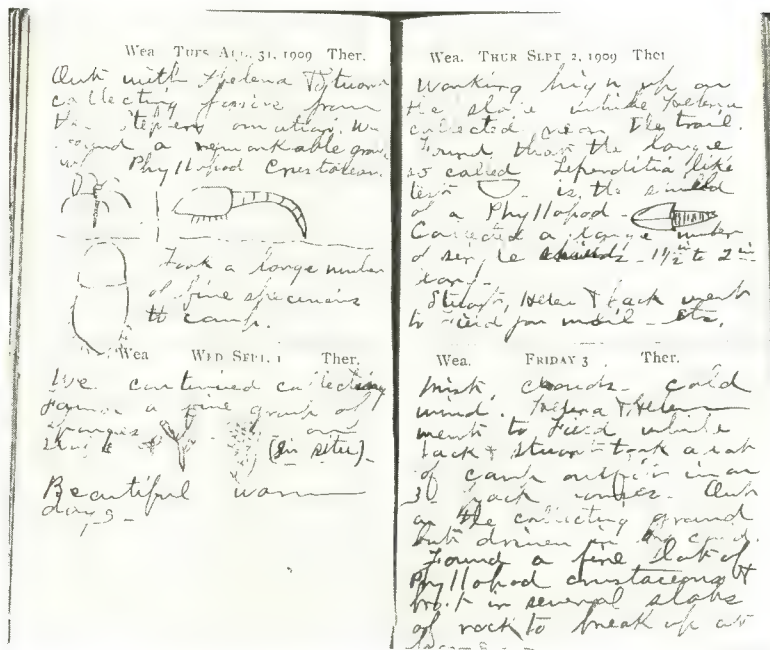 Wea Tues Aug. 31, 1909 Ther.
Out with Helena & Stuart
collecting fossils from
the Stephen formation. We
found a remarkable group
of Phyllopod Crustaceans.
Took a large number
of fine specimens
to camp.
Wea Wed Sept. 1 Ther.
We continued collecting
Found a fine group of
sponges
(in situ)-
Beautiful warm
days-
Wea. Thur Sept 2, 1909 Ther
Working high up on
the slope while Helena
collected near the trail.
Found that the large
so called Leperditia like
test is the shield
of a Phyllopod-
Collected a large number
of single shields - 1 1/2 in to 2 in
long-
Stuart, Helen & Jack went
to Field for mail - etc.
Wea. Friday 3 Ther.
Mist, clouds - cold
wind. Helena & Helen
went to Field while
Jack & Stuart took a lot
of camp outfit
Out
on the collecting ground
but driven in
Found a fine lot of
Phyllopod crustaceans &
bro't in several slabs
of rock to break up at